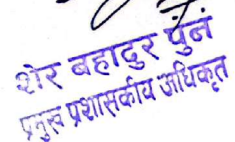 शेर बहादुर पुन
प्रमुख प्रशासकीय अधिकृत